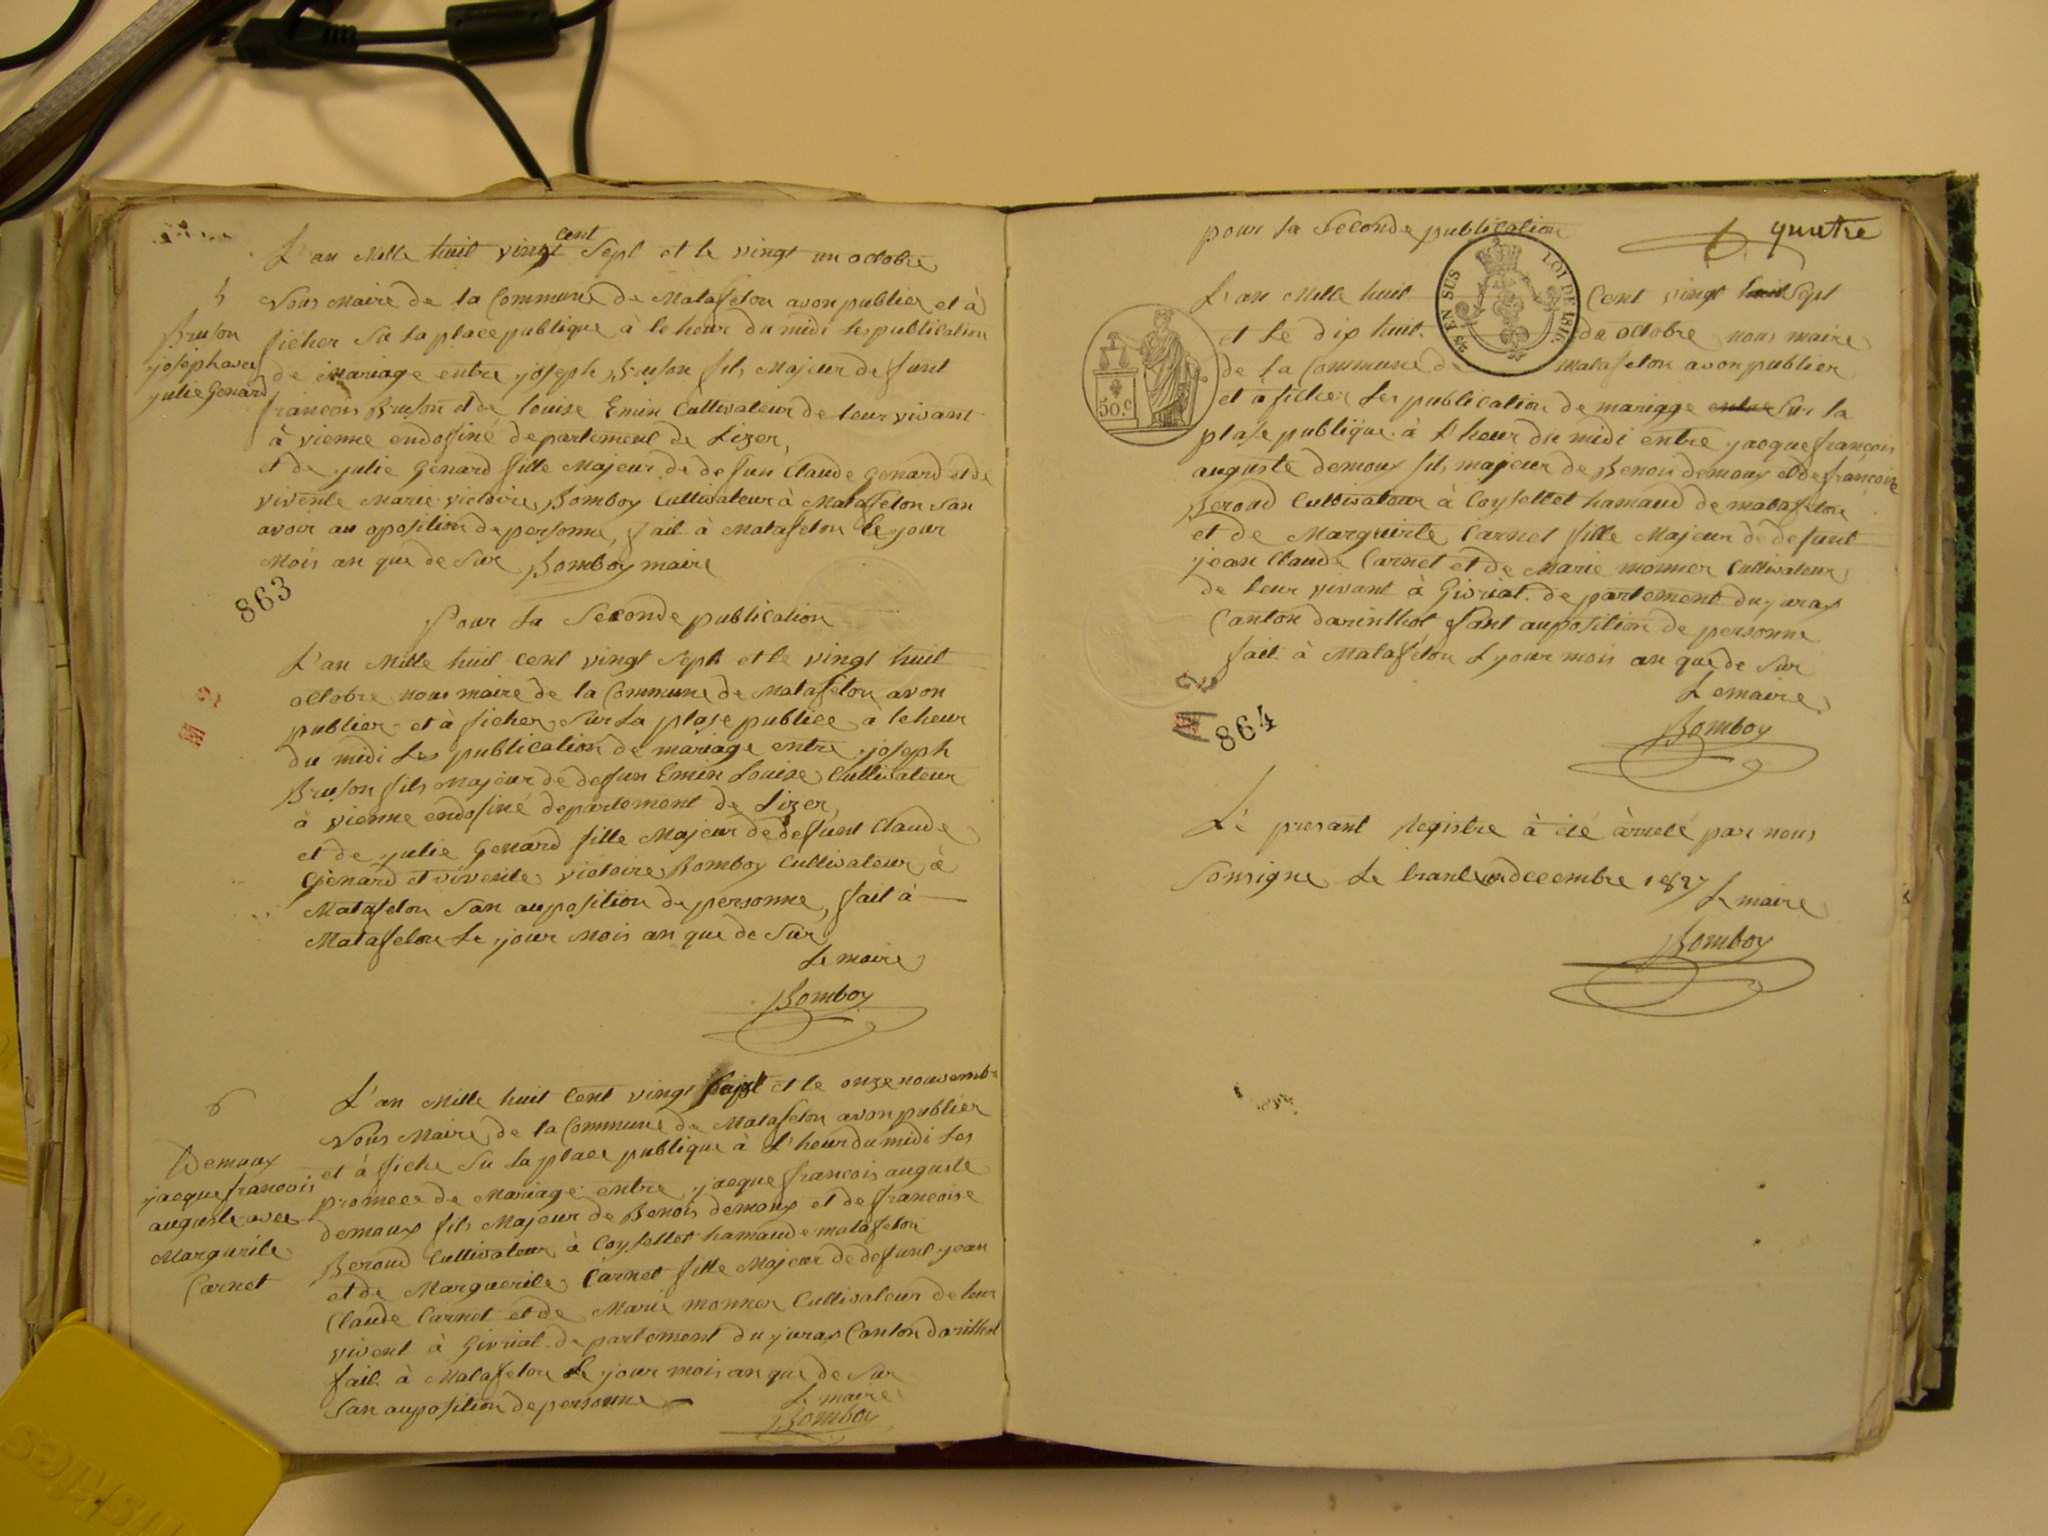 L'an Mille huit cent vingt Sept et le vingt un octobre
5
Nous Maire de la Commune de Matafelon avon publier et à
ficher Su la place publique à le heur du midi Les publication
de Mariage entre joseph Bruson fils Majeur de funt
francois Bruson et de louise Emin Cultivateur de leur vivant
à vienne endossiné departement de Lizer,
et de julie Genard fille Majeur de defun Claude Genard et de
vivente Marie victoire Bomboy Cultivateur à Matafelon San
avoir au oposition de personne, fait à Matafelon le jour
Mois an que de Sur Bomboy maire
Bruson
joseph avec
julie Genard
863
Pour La Seconde publication
L'an Mille huit Cent vingt Sept et le vingt huit
octobre nous maire de la Commune de Matafelon avon
publier et à ficher Sur La plase publice à le heur
du midi Les publication de mariage entre joseph
Bruson fils Majeur de defun Emin Louise Cultivateur
à vienne endosiné departement de Lizer,
et de julie Genard fille Majeur de defunt Claude
Genard et vivente victoire Bomboy Cultivateur à
Matafelon San auposition de personne, fait à
Matafelon Le jour Mois an que de Sur
Le maire
Bomboy
6
L'an Mille huit Cent vingt Sept et le onze nouvemb
Nous Maire de la Commune de Matafelon avon publier
et à fiche Su La place publique à L'heur du midi Les
promece de Mariage entre jacque francois auguste
demoux fils Majeur de Benois demoux et de francoise
Beroud Cultivateur à Coysellet hamaude matafelon
et de Marguerite Carnet fille Majeur de defunt jean
Claude Carnet et de Marie monner Cultivateur de leur
vivent à Givriat departement du juras Canton darilhot
fait à Matafelon Le jour mois an que de Sur
San auposition de personne
Le maire
Bomboy
Demoux
jacque francois
auguste avec
Margurite
Carnet
pour La Seconde publication
quatre
25 EN SUS
LOI DE 1816.
50.c
L'an Mille huit Cent vingt huit Sept
et Le dix huit de octobre nous maire
de La Commune de Matafelon avon publier
et à ficher Les publication de mariage entre Sur La
plase publique à L'heur du midi entre jacque francois
auguste demoux fils majeur de Benois demoux et de francoise
Beroud Cultivateur à Coysellet hamaud de matafelon
et de Marguirite Carnet fille Majeur de defunt
jean Claude Carnet et de Marie monner Cultivateur
de leur vivant à Givriat departement du juras
Canton darinthot Sant auposition de personne
fait à Matafelon L jour mois an que de Sur
Le maire
Bomboy
864
Le presant Registre à été àrreté par nous
Sousigne Le trant un decembre 1827
Le maire
Bomboy